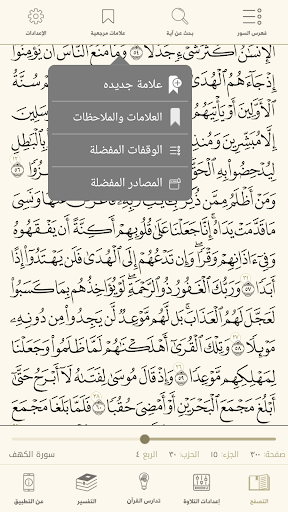 فهرس السور
بحث عن آية
علامات مرجعية
الإعدادات
ٱلۡإِنسَٰنُ أَكۡثَرَ شَيۡءٖ وَمَا مَنَعَ ٱلنَّاسَ أَن يُؤۡمِنُوٓاْ
إِذۡ جَآءَهُمُ ٱلۡهُدَىٰ
ٱلۡأَوَّلِينَ
إِلَّا مُبَشِّرِينَ بِٱلۡبَٰطِلِ
لِيُدۡحِضُواْ بِهِ ٱلۡحَقَّ ٥٦
وَمَنۡ أَظۡلَمُ مِمَّن عَنۡهَا وَنَسِيَ
علامة جديده
العلامات والملاحظات
الوقفات المفضلة
المصادر المفضلة
مَا قَدَّمَتۡ يَدَاهُۚ إِنَّا جَعَلۡنَا عَلَىٰ قُلُوبِهِمۡ أَكِنَّةً أَن يَفۡقَهُوهُ
وَفِيٓ ءَاذَانِهِمۡ وَقۡرٗاۖ وَإِن تَدۡعُهُمۡ إِلَى ٱلۡهُدَىٰ فَلَن يَهۡتَدُوٓاْ إِذًا
أَبَدٗا ٥٧ وَرَبُّكَ ٱلۡغَفُورُ ذُو ٱلرَّحۡمَةِۖ لَوۡ يُؤَاخِذُهُم بِمَا كَسَبُواْ
لَعَجَّلَ لَهُمُ ٱلۡعَذَابَۚ بَل لَّهُم مَّوۡعِدٞ لَّن يَجِدُواْ مِن دُونِهِۦ
مَوۡئِلٗا ٥٨ وَتِلۡكَ ٱلۡقُرَىٰٓ أَهۡلَكۡنَٰهُمۡ لَمَّا ظَلَمُواْ وَجَعَلۡنَا
لِمَهۡلِكِهِم مَّوۡعِدٗا ٥٩ وَإِذۡ قَالَ مُوسَىٰ لِفَتَىٰهُ لَآ أَبۡرَحُ حَتَّىٰٓ
أَبۡلُغَ مَجۡمَعَ ٱلۡبَحۡرَيۡنِ أَوۡ أَمۡضِيَ حُقُبٗا ٦٠ فَلَمَّا بَلَغَا مَجۡمَعَ
صفحة: ٣٠٠ الجزء: ١٥ الحزب: ٣٠ الربع ٤ سورة الكهف
التصفح
إعدادات التلاوة
تدارس القرآن
التفسير
عن التطبيق